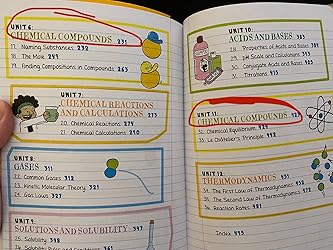 UNIT 6:
CHEMICAL COMPOUNDS 231
17. Naming Substances 232
18. The Mole 249
19. Finding Compositions in Compounds 263
UNIT 7:
CHEMICAL REACTIONS
AND CALCULATIONS 273
20. Chemical Reactions 274
21. Chemical Calculations 290
UNIT 8:
GASES 311
22. Common Gases 312
23. Kinetic Molecular Theory 321
24. Gas Laws 327
UNIT 9:
SOLUTIONS AND SOLUBILITY 347
Solubility 348
UNIT 10:
ACIDS AND BASES 383
28. Properties of Acids and Bases 384
29. pH Scale and Calculations
30. Conjugate Acids and Bases 405
31. Titrations 415
UNIT 11:
CHEMICAL COMPOUNDS
32. Chemical Equilibrium
33. Le Châtelier's Principle 442
UNIT 12:
THERMODYNAMICS 451
34. The First Law of Thermodynamics 452
35. The Second Law of Thermodynamics
36. Reaction Rates 481
Index 495